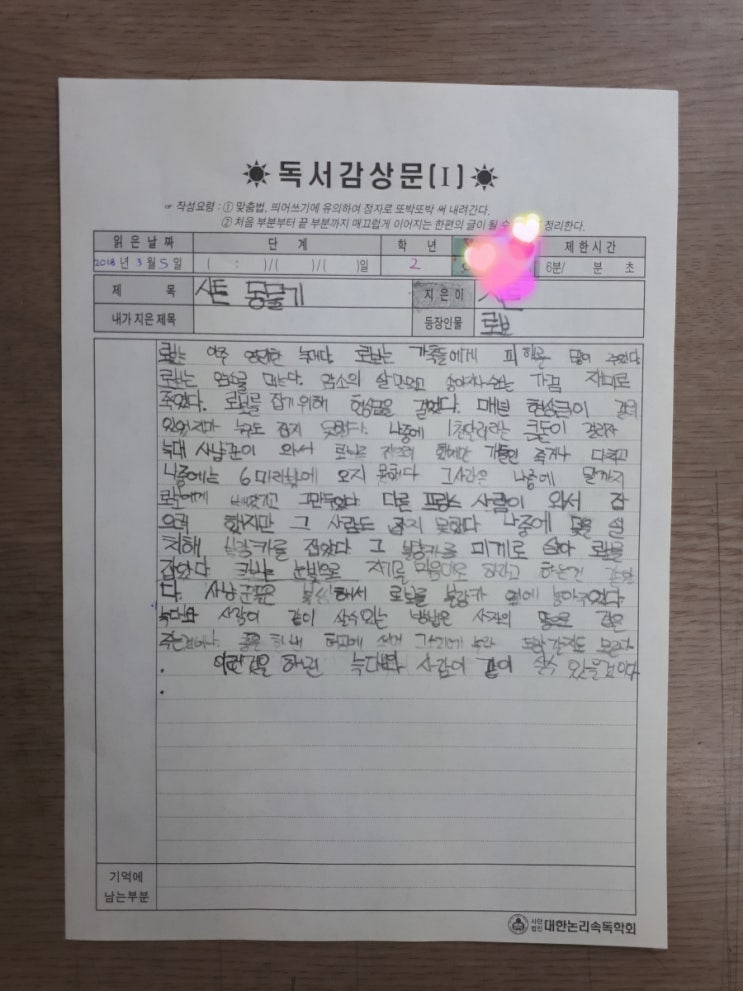 독서감상문(I)
☞ 작성요령 : ① 맞춤법, 띄어쓰기에 유의하여 정자로 또박또박 써 내려간다.
② 처음 부분부터 끝 부분까지 매끄럽게 이어지는 한편의 글이 될 수 정리한다.
읽은날짜 단계 학년 제한시간
2018년 3월 5일 ( : )/( )/( )일 2 6분/ 분 초
제목 시튼 동물기 지은이
내가 지은 제목 등장인물 로보
로보는 아주 영리한 늑대다. 로보는 가족들에게 피해를 많이 주었다
로보는 암소를 먹는다. 암소의 살만먹고 송아지나 는 가끔 재미로
죽였다. 로보를 잡기위해 현상금을 걸었다. 매번 현상금이 걸려
있었지만 누구도 잡지 못했다. 나중에 1천달러라는 큰돈이 걸리자
늑대 사냥꾼이 와서 로보를 하지만 개들만 죽거나 다치고
나중에는 6마리밖에 오지 못해다 그사람은 나중에 말까지
로보에게 그만두었다 다른 프랑스 사람이 와서 잡
으려 했지만 그 사람도 잡지 못했다 나중에 덫을 설
치해 블랑카를 잡았다 그 블랑카를 미끼로 로보를
잡았다 로보는 눈빛으로 자기를 마음대로 하라고 하는건
다. 사냥꾼들은 불쌍해서 로보를 블랑카 옆에 놓아주었다
늑대와 사람이 같이 살수있는 방법은 사자의 같은
주는것이다.
이런것을 하면 늑대와 사람이 같이 살수 있을것이다
기억에
남는부분
사단
법인 대한논리속독학회